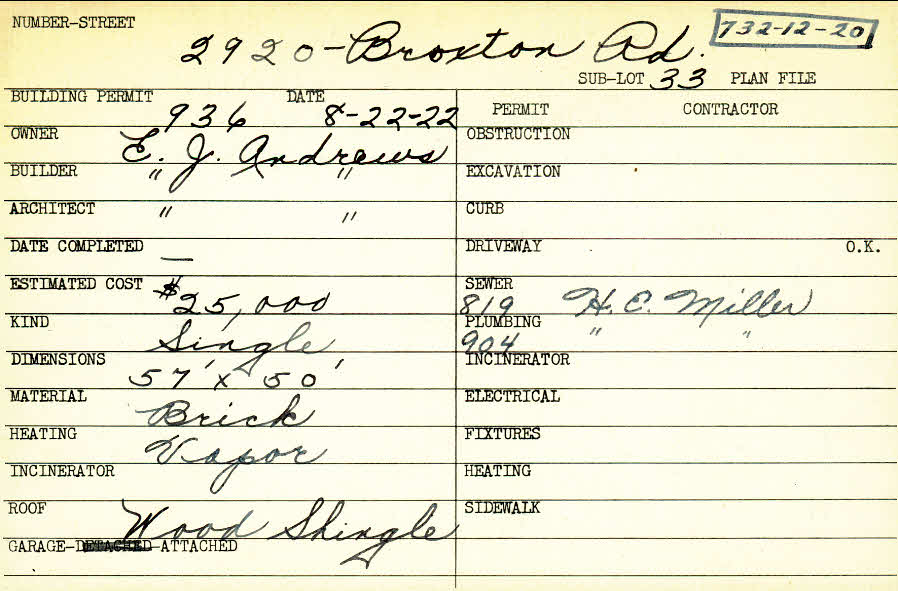 NUMBER-STREET 2920-Broxton Rd. 732-12-20
SUB-LOT 33 PLAN FILE
BUILDING PERMIT 936 DATE 8-22-22
OWNER E. J. Andrews
BUILDER " "
ARCHITECT " "
DATE COMPLETED —
ESTIMATED COST $25,000
KIND Single
DIMENSIONS 57' x 50'
MATERIAL Brick
HEATING Vapor
INCINERATOR
ROOF Wood Shingle
GARAGE-DETACHED-ATTACHED
PERMIT CONTRACTOR
OBSTRUCTION
EXCAVATION
CURB
DRIVEWAY O.K.
SEWER
819 H. C. Miller
PLUMBING " "
904
INCINERATOR
ELECTRICAL
FIXTURES
HEATING
SIDEWALK